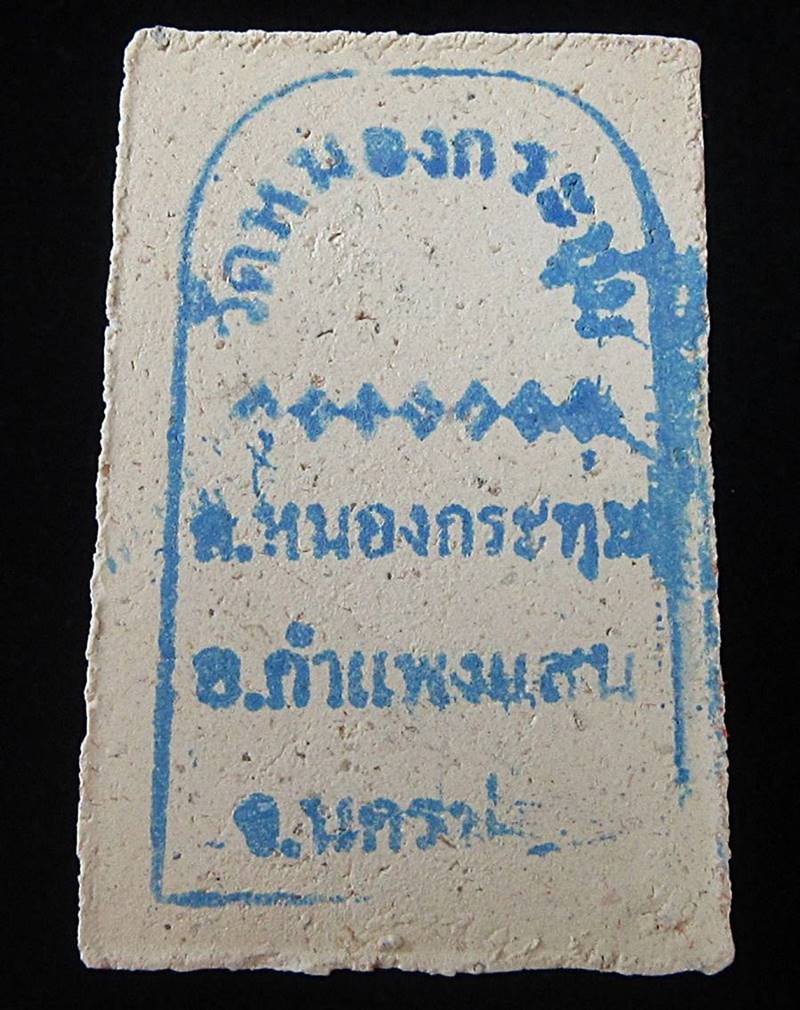 วัดหนองกระทุ่ม
ต.หนองกระทุ่ม
อ.กำแพงแสน
จ.นครป